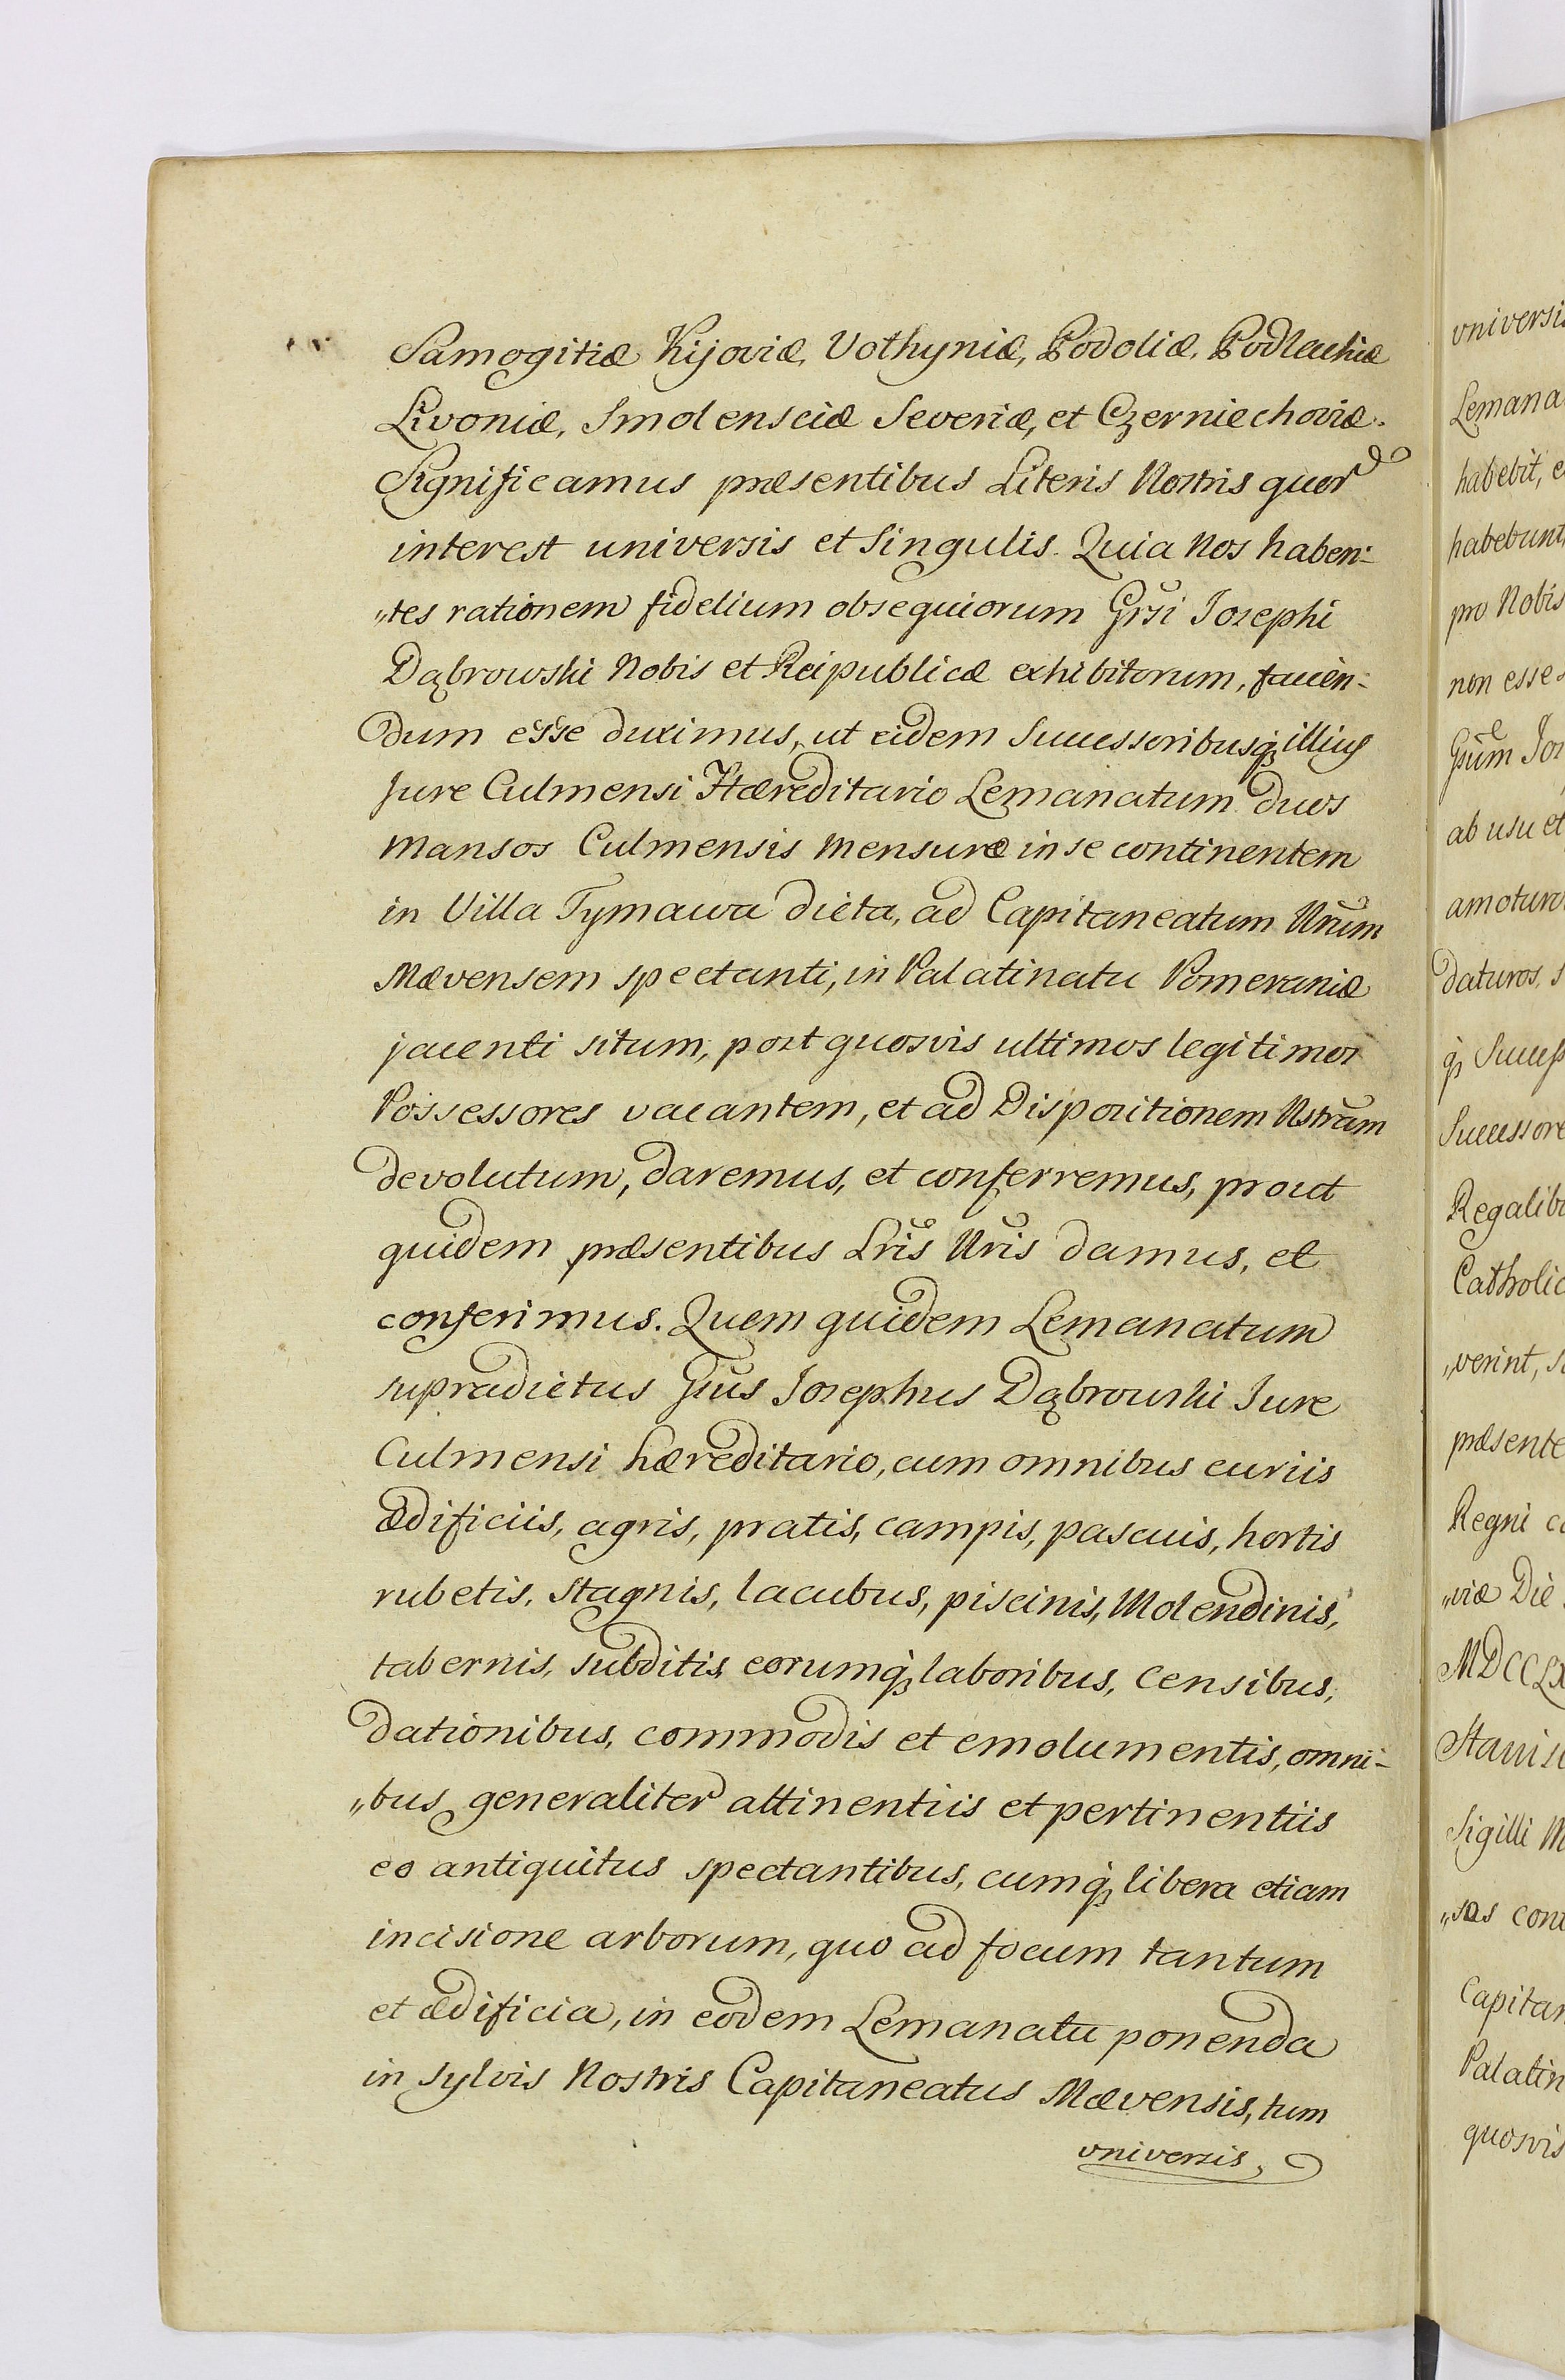 Samogitiæ Kijoviæ, Volhyniæ, Podoliæ, Podlachiæ
Livoniæ, Smolensciæ Severiæ, et Czerniechoviæ.
Significamus præsentibus Literis Nostris quor̃
interest universis et Singulis. Quia Nos haben-
„tes rationem fidelium obsequiorum Gr̃si Josephi
Dąbrowski Nobis et Reipublicæ exhibitorum, facien-
dum esse duximus, ut eidem Successoribusq̨ illius
Jure Culmensi Hæreditario Lemanatum duos
Mansos Culmensis Mensuræ in se continentem
in Villa Tymawa dicta, ad Capitaneatum Nrũm
Mævensem spectanti, in Palatinatu Pomeraniæ
jacenti situm, post quosvis ultimos legitimos
Possessores vacantem, et ad Dispositionem Nstrãm
devolutum, daremus, et conferremus, prout
quidem præsentibus Lr̃is Nr̃is damus, et
conferimus. Quem quidem Lemanatum
supradictus Gr̃us Josephus Dąbrowski Jure
Culmensi hæreditario, cum omnibus curiis
ædificiis, agris, pratis, campis, pascuis, hortis
rubetis, stagnis, lacubus, piscinis, Molendinis,
tabernis, subditis eorumq̨ laboribus, Censibus,
dationibus, commodis et emolumentis, omni-
„bus generaliter attinentiis et pertinentiis
eo antiquitus spectantibus, cumq̨ libera etiam
incisione arborum, quo ad focum tantum
et ædificia, in eodem Lemanatu ponenda
in sylvis Nostris Capitaneatus Mævensis, tum
universis,
universis
Lemana
habebit, e
habebunt,
pro Nobis
non esse
Gr̃um Jos
ab usu et
amotur
daturos, s
q̨ Success
Successore
Regalib
Catholic
„verint, s
præsente
Regni c
„viæ Die
MDCCLX
Stanis
Sigilli M
„sas cont
Capitan
Palatin
quosvis